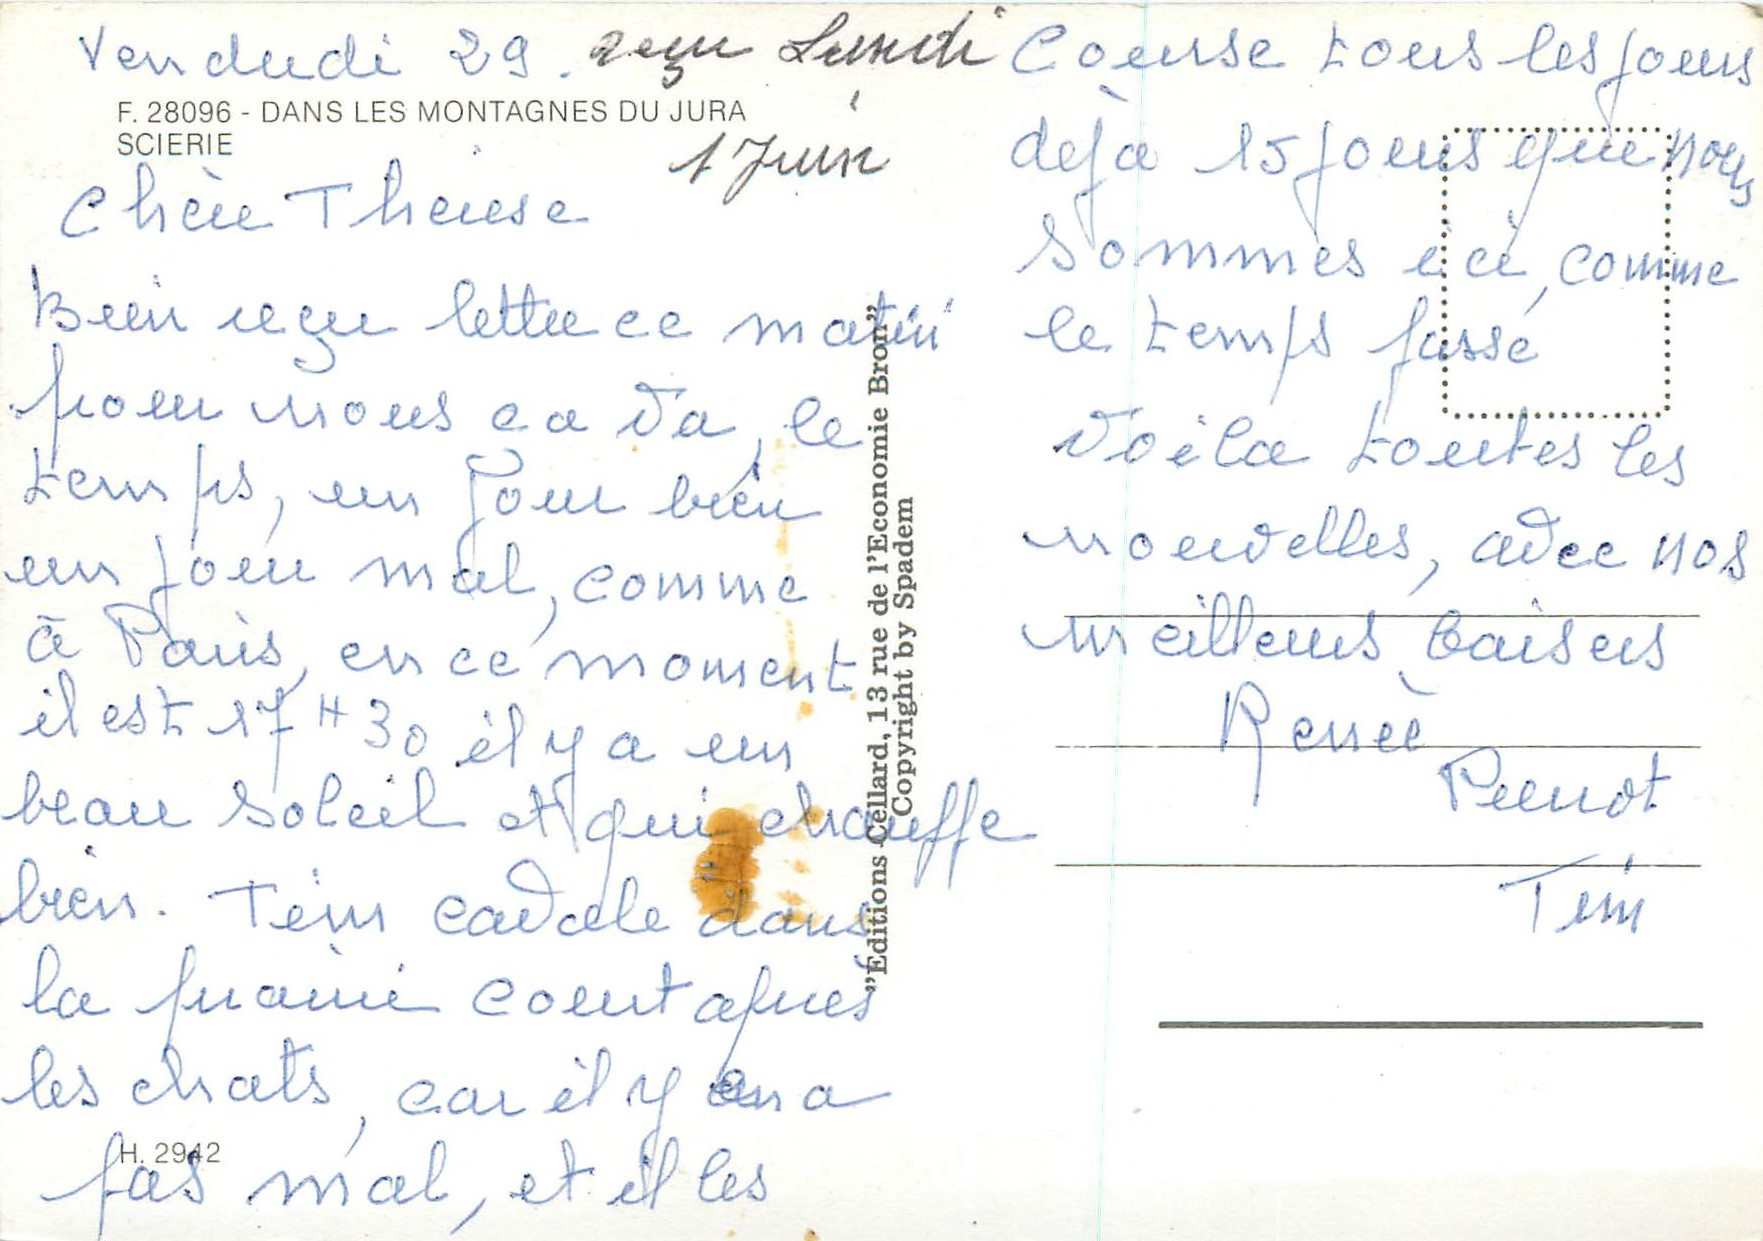 Vendredi 29. reçu Lundi
1 Juin
F. 28096 - DANS LES MONTAGNES DU JURA
SCIERIE
Chère Therese
Bien reçu lettre ce matin
pour nous ca va, le
temps, un jour bien
un jour mal, comme
à Paris, en ce moment
il est 17 H 30 il y a un
beau soleil et qui chauffe
bien. Tim cavale dans
la prairie court apres
les chats, car il y en a
H. 2942
pas mal, et il les
"Editions Cellard, 13 rue de l'Economie Bron"
Copyright by Spadem
Course tous les jours
dejà 15 jours que nous
sommes ici, comme
le temps passé
voila toutes les
nouvelles, avec nos
meilleurs baisers
Renée
Pierrot
Tim